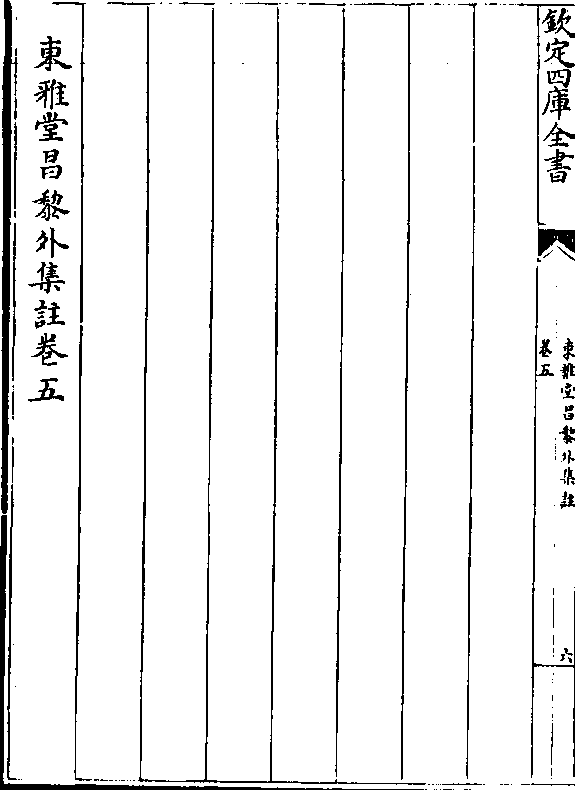 欽定四庫全書
東雅堂昌黎外集註
卷五
六
東雅堂昌黎外集註卷五